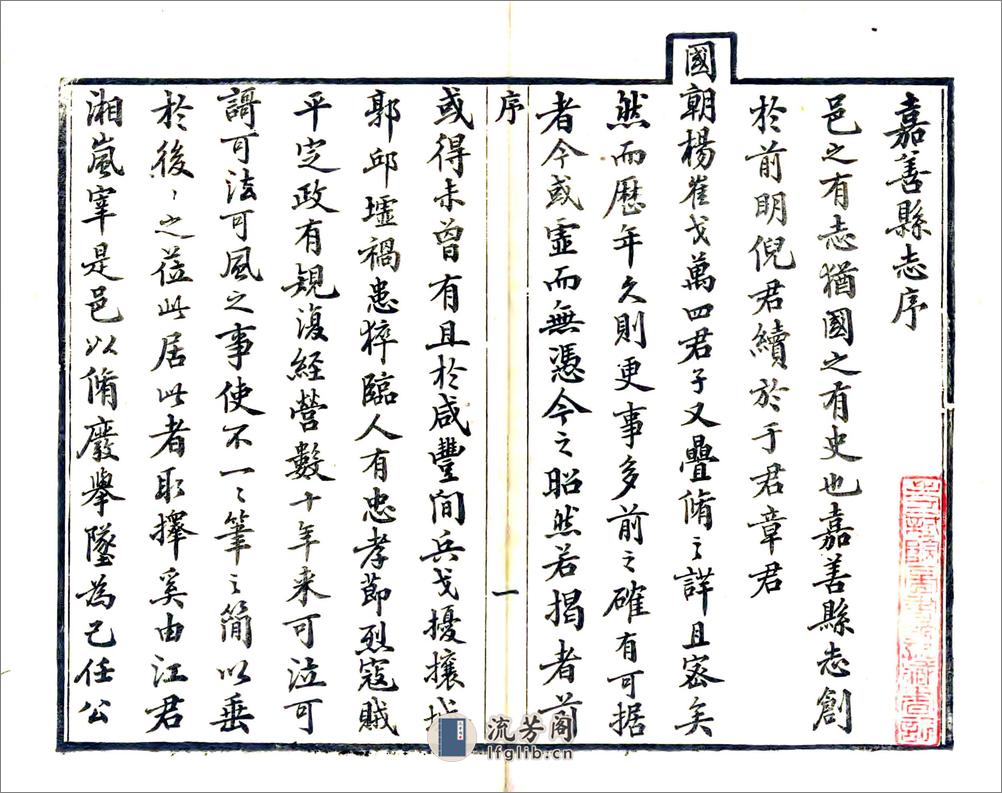 嘉善縣志序
邑之有志猶國之有史也嘉善縣志創
於前明倪君續於于君章君
國朝楊崔戈萬四君子又疊脩之詳且密矣
然而歷年久則更事多前之確有可据
者今或虛而無憑今之昭然若揭者前
序
一
或得未曾有且於咸豐間兵戈擾攘城
郭邱墟禍患猝臨人有忠孝節烈寇賊
平定政有規復經營數十年來可泣可
謌可法可風之事使不一一筆之簡以垂
於後後之莅此居此者取擇奚由江君
湘嵐宰是邑以脩廢舉墜為己任公
流芳阁
lfglib.cn